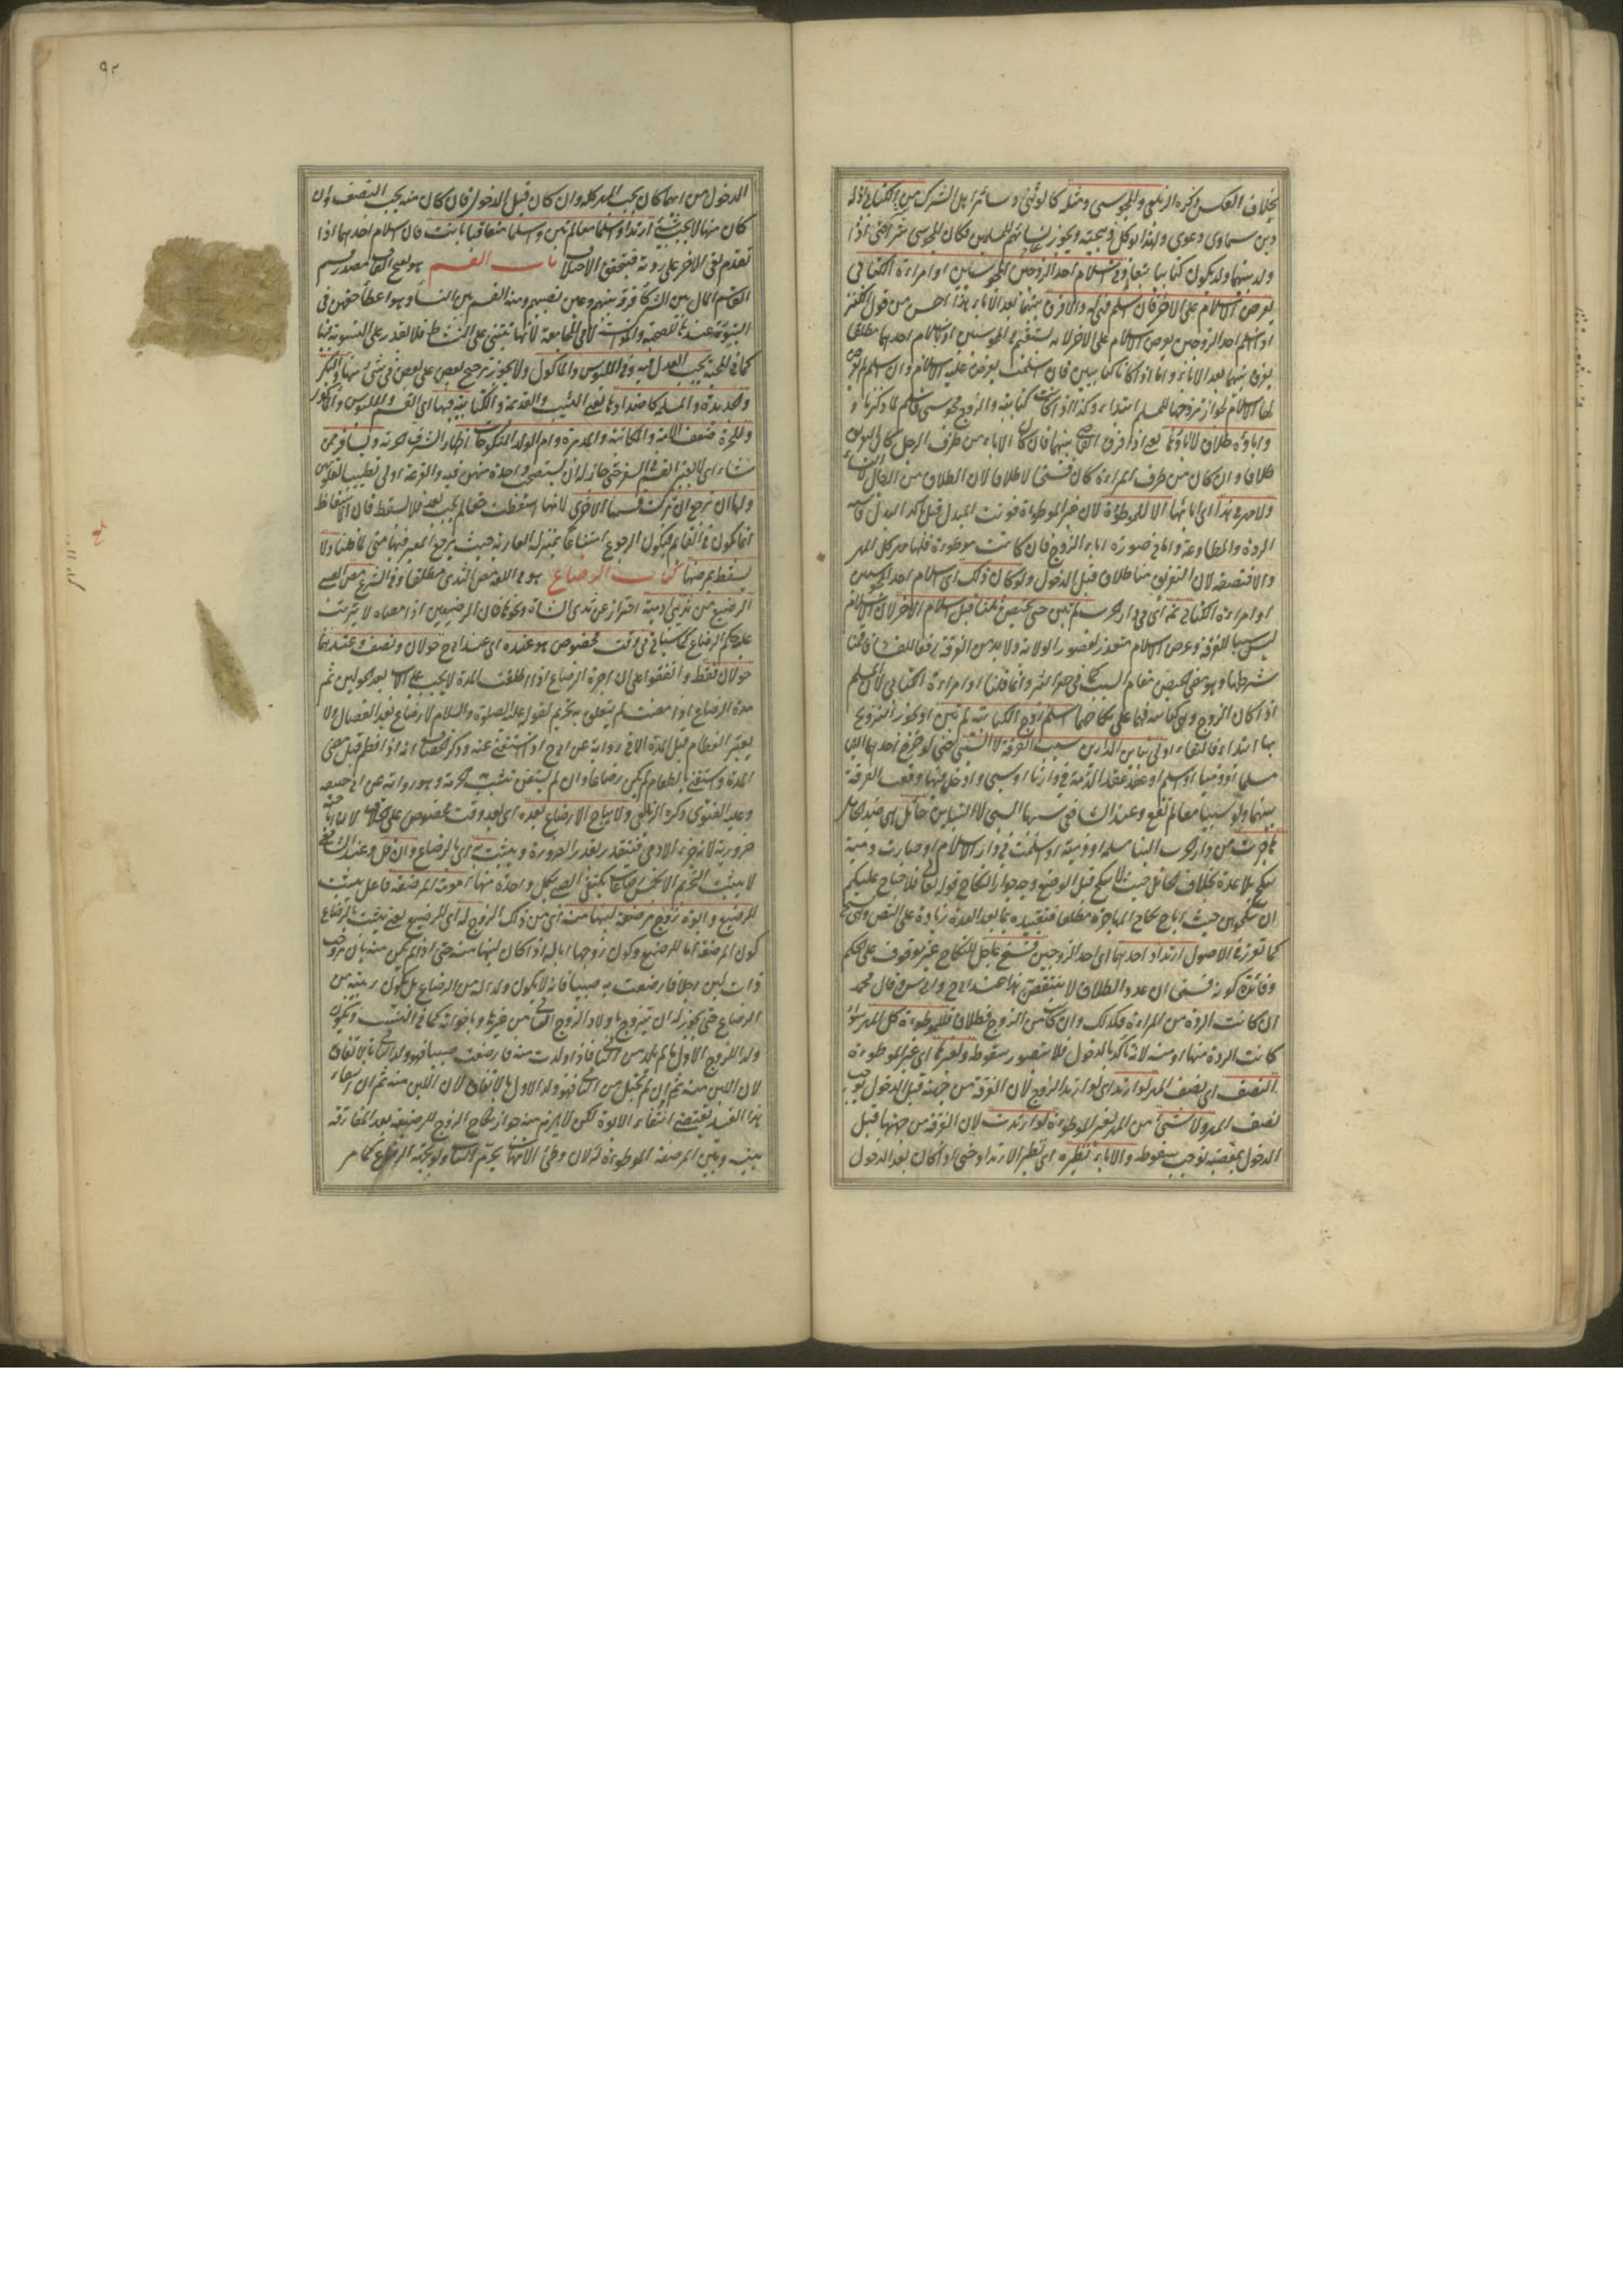 بخلاف العكس ذكره الزيلعي والمجوسي ومثله كالوثني وسائر اهل الشرك من الكتابي اذ له
دين سماوي دعوى ولهذا يوكل ذبيحته ويجوز نكاح نسائهم للمسلمين فكان المجوسي شرا حتى اذا
ولد بينهما ولد يكون كتابيا تبعا له وفي اسلام احد الزوجين المجوسيين او امراءة الكتابي
يعرض الاسلام على الاخر فان اسلم فهي له والا فرق بينهما بعد الاباء هذا احسن من قول الكنز
او اسلم احد الزوجين يعرض الاسلام على الاخر لانه يستقيم في المجوسيين او اسلام احدهما مطلقا
يفرق بينهما بعد الاباء واما اذا كانا كتابيين فان اسلمت يعرض عليه الاسلام وان اسلم لم يعرض
لها الاسلام لجواز تزوجها للمسلم ابتداء وكذا اذا كانت كتابية والزوج مجوسي فاسلم لما ذكرنا و
واباؤه طلاق لا اباؤها يعني اذا فرق القاضي بينهما فان كان الاباء من طرف الرجل كان التفريق
طلاقا وان كان من طرف المراءة كان فسخا لا طلاقا لان الطلاق من الرجال لا النساء
ولا مهر في هذا اي ابائها الا للموطوءة لان غير الموطوءة فوتت المبدل قبل تأكد البدل فاشبه
الردة والمطاوعة واما في صورة اباء الزوج فان كانت موطوءة فلها مهر كل المهر
والا فنصفه لان التفريق هنا طلاق قبل الدخول ولو كان ذلك اي اسلام احد المجوسيين
او امراءة الكتابي ثمه اي في دار الحرب لم تبن حتى تحيض ثلاثا قبل اسلام الاخر لان الاسلام
ليس سببا للفرقة وعرض الاسلام متعذر لقصور الولاية ولا بد من الفرقة رفعا للفساد فاقمنا
شرطها وهو مضي الحيض مقام السبب كما في حفر البئر وانما قلنا او امراءة الكتابي لان المسلم
اذا كان الزوج وهي كتابية فهما على نكاحهما اسلم زوج الكتابية لم تبن اذ يجوز التزوج
بها ابتداء فالبقاء اولى تباين الدارين سبب الفرقة لا السبي حتى لو خرج احدهما الينا
مسلما او ذميا او اسلم او عقد عقد الذمة في دارنا او سبي وادخل فيها وقعت الفرقة
بينهما ولو سبيا معا لم تقع وعند الشافعي سببها السبي لا التباين حائل اي ضد الحامل
هاجرت من دار الحرب الينا مسلمة او ذمية او اسلمت في دار الاسلام او صارت ذمية
تنكح بلا عدة بخلاف الحامل حيث لا تنكح قبل الوضع وجه جواز النكاح قوله تعالى فلا جناح عليكم
ان تنكحوهن حيث اباح نكاح المهاجرة مطلقا فتقييده بما بعد العدة زيادة على النص وهي نسخ
كما تقرر في الاصول ارتداد احدهما اي احد الزوجين فسخ عاجل للنكاح غير موقوف على الحكم
وفائدة كونه فسخا ان عدد الطلاق لا ينتقص هذا عند ابي ح وابي س وقال محمد
ان كانت الردة من المراءة فكذلك وان كانت من الزوج فطلاق فللموطوءة كل المهر سواء
كانت الردة منها او منه لانه تأكد بالدخول فلا يتصور سقوطه ولغيرها اي غير الموطوءة
النصف اي نصف المهر لو ارتد اي لو ارتد الزوج لان الفرقة من جهته قبل الدخول توجب
نصف المهر ولا شيء من المهر لغير الموطوءة لو ارتدت لان الفرقة من جهتها قبل
الدخول بمعصية توجب سقوطه والاباء نظيره اي نظير الارتداد حتى اذا كان بعد الدخول
٩٢
الدخول من ايهما كان يجب المهر كله وان كان قبل الدخول فان كان منه يجب النصف وان
كان منها لا يجب شيء ارتدا واسلما معا لم تبن واسلما متعاقبا بانت فان اسلام احدهما اذا
تقدم بقي الاخر على ردته فيتحقق الاختلاف باب القسم هو بفتح القاف مصدر قسم
القاسم المال بين الشركاء فرقه بينهم وعين نصيبهم ومنه القسم بين النساء وهو اعطاء حقهن في
البيتوتة عندها للصحبة والمؤانسة لا في المجامعة لانها تبتنى على النشاط فلا يقدر على التسوية فيها
كما في المحبة يجب العدل فيه وفي الملبوس والمأكول ولا يجوز ترجيح بعض على بعض في شيء منها والبكر
والجديدة والمسلمة كاضدادها يعني الثيب والقديمة والكتابية فيها اي القسم والملبوس والمأكول
وللحرة ضعف الامة والمكاتبة والمدبرة وام الولد المنكوحات اظهارا لشرف الحرية ويسافر بمن
شاء اي لا يعتبر القسم في السفر حتى جاز له ان يستصحب واحدة منهن فيه والقرعة اولى تطييبا لقلوبهن
ولها ان ترجع ان تركت قسمها للاخرى لانها اسقطت حقا لم يجب بعد فلا يسقط فان الاسقاط
انما يكون في القائم فيكون الرجوع امتناعا بمنزلة العارية حيث يرجع المعير فيها متى شاء لما قلنا ولا
يسقط بمرضها كتاب الرضاع هو في اللغة مص الثدي مطلقا وفي الشرع مص الصبي
الرضيع من ثدي ادمية احتراز عن ثدي الشاة ونحوها فان الرضيعين اذا مصاه لا يترتب
عليه حكم الرضاع كما سيأتي في وقت مخصوص هو عنده اي عند ابي ح حولان ونصف وعندهما
حولان فقط واتفقوا على ان اجرة الرضاع اذا طلقت المدة لا يجب على الاب بعد الحولين ثم
مدة الرضاع اذا مضت لم يتعلق به تحريم لقوله عليه الصلوة والسلام لا رضاع بعد الفصال ولا
يعتبر الفطام قبل المدة الا في رواية عن ابي ح اذا استغنى عنه وذكر الخصاف انه اذا فطم قبل مضي
المدة واستغنى بالطعام لم يكن رضاعا وان لم يستغن تثبت به الحرمة وهو رواية عن ابي حنيفة
وعليه الفتوى ذكره الزيلعي ولا يباح الارضاع بعده اي بعد وقت مخصوص على الخلاف لان اباحته
ضرورية لانه جزء الادمي فتتقدر بقدر الضرورة ويثبت به اي بالرضاع وان قل وعند الشافعي
لا يثبت التحريم الا بخمس رضعات يكتفي الصبي بكل واحدة منها امومة المرضعة فاعل يثبت
للرضيع وابوة زوج مرضعة لبنها منه اي من ذلك الزوج له اي للرضيع يعني يثبت بالرضاع
كون المرضعة اما للرضيع وكون زوجها ابا له اذا كان لبنها منه حتى اذا لم يكن منه بان تزوجت
ذات لبن رجلا فارضعت به صبيا فانه لا يكون ولدا له من الرضاع بل يكون ربيبه من
الرضاع حتى يجوز له ان يتزوج باولاد الزوج الثاني من غيرها وباخواته كما في النسب ويكون
ولدا للزوج الاول ما لم تلد من الثاني فاذا ولدت منه فارضعت صبيا فهو ولد الثاني بالاتفاق
لان اللبن منه ثم ان لم تحبل من الثاني فهو ولد الاول بالاتفاق لان اللبن منه ثم ان انتفاء
هذا القيد يقتضي انتفاء الابوة لكن لا يلزم منه جواز نكاح الزوج للرضيعة بعد المفارقة
بينه وبين المرضعة الموطوءة له لان وطئ الامهات يحرم البنات ولو بجهة الرضاع كما مر